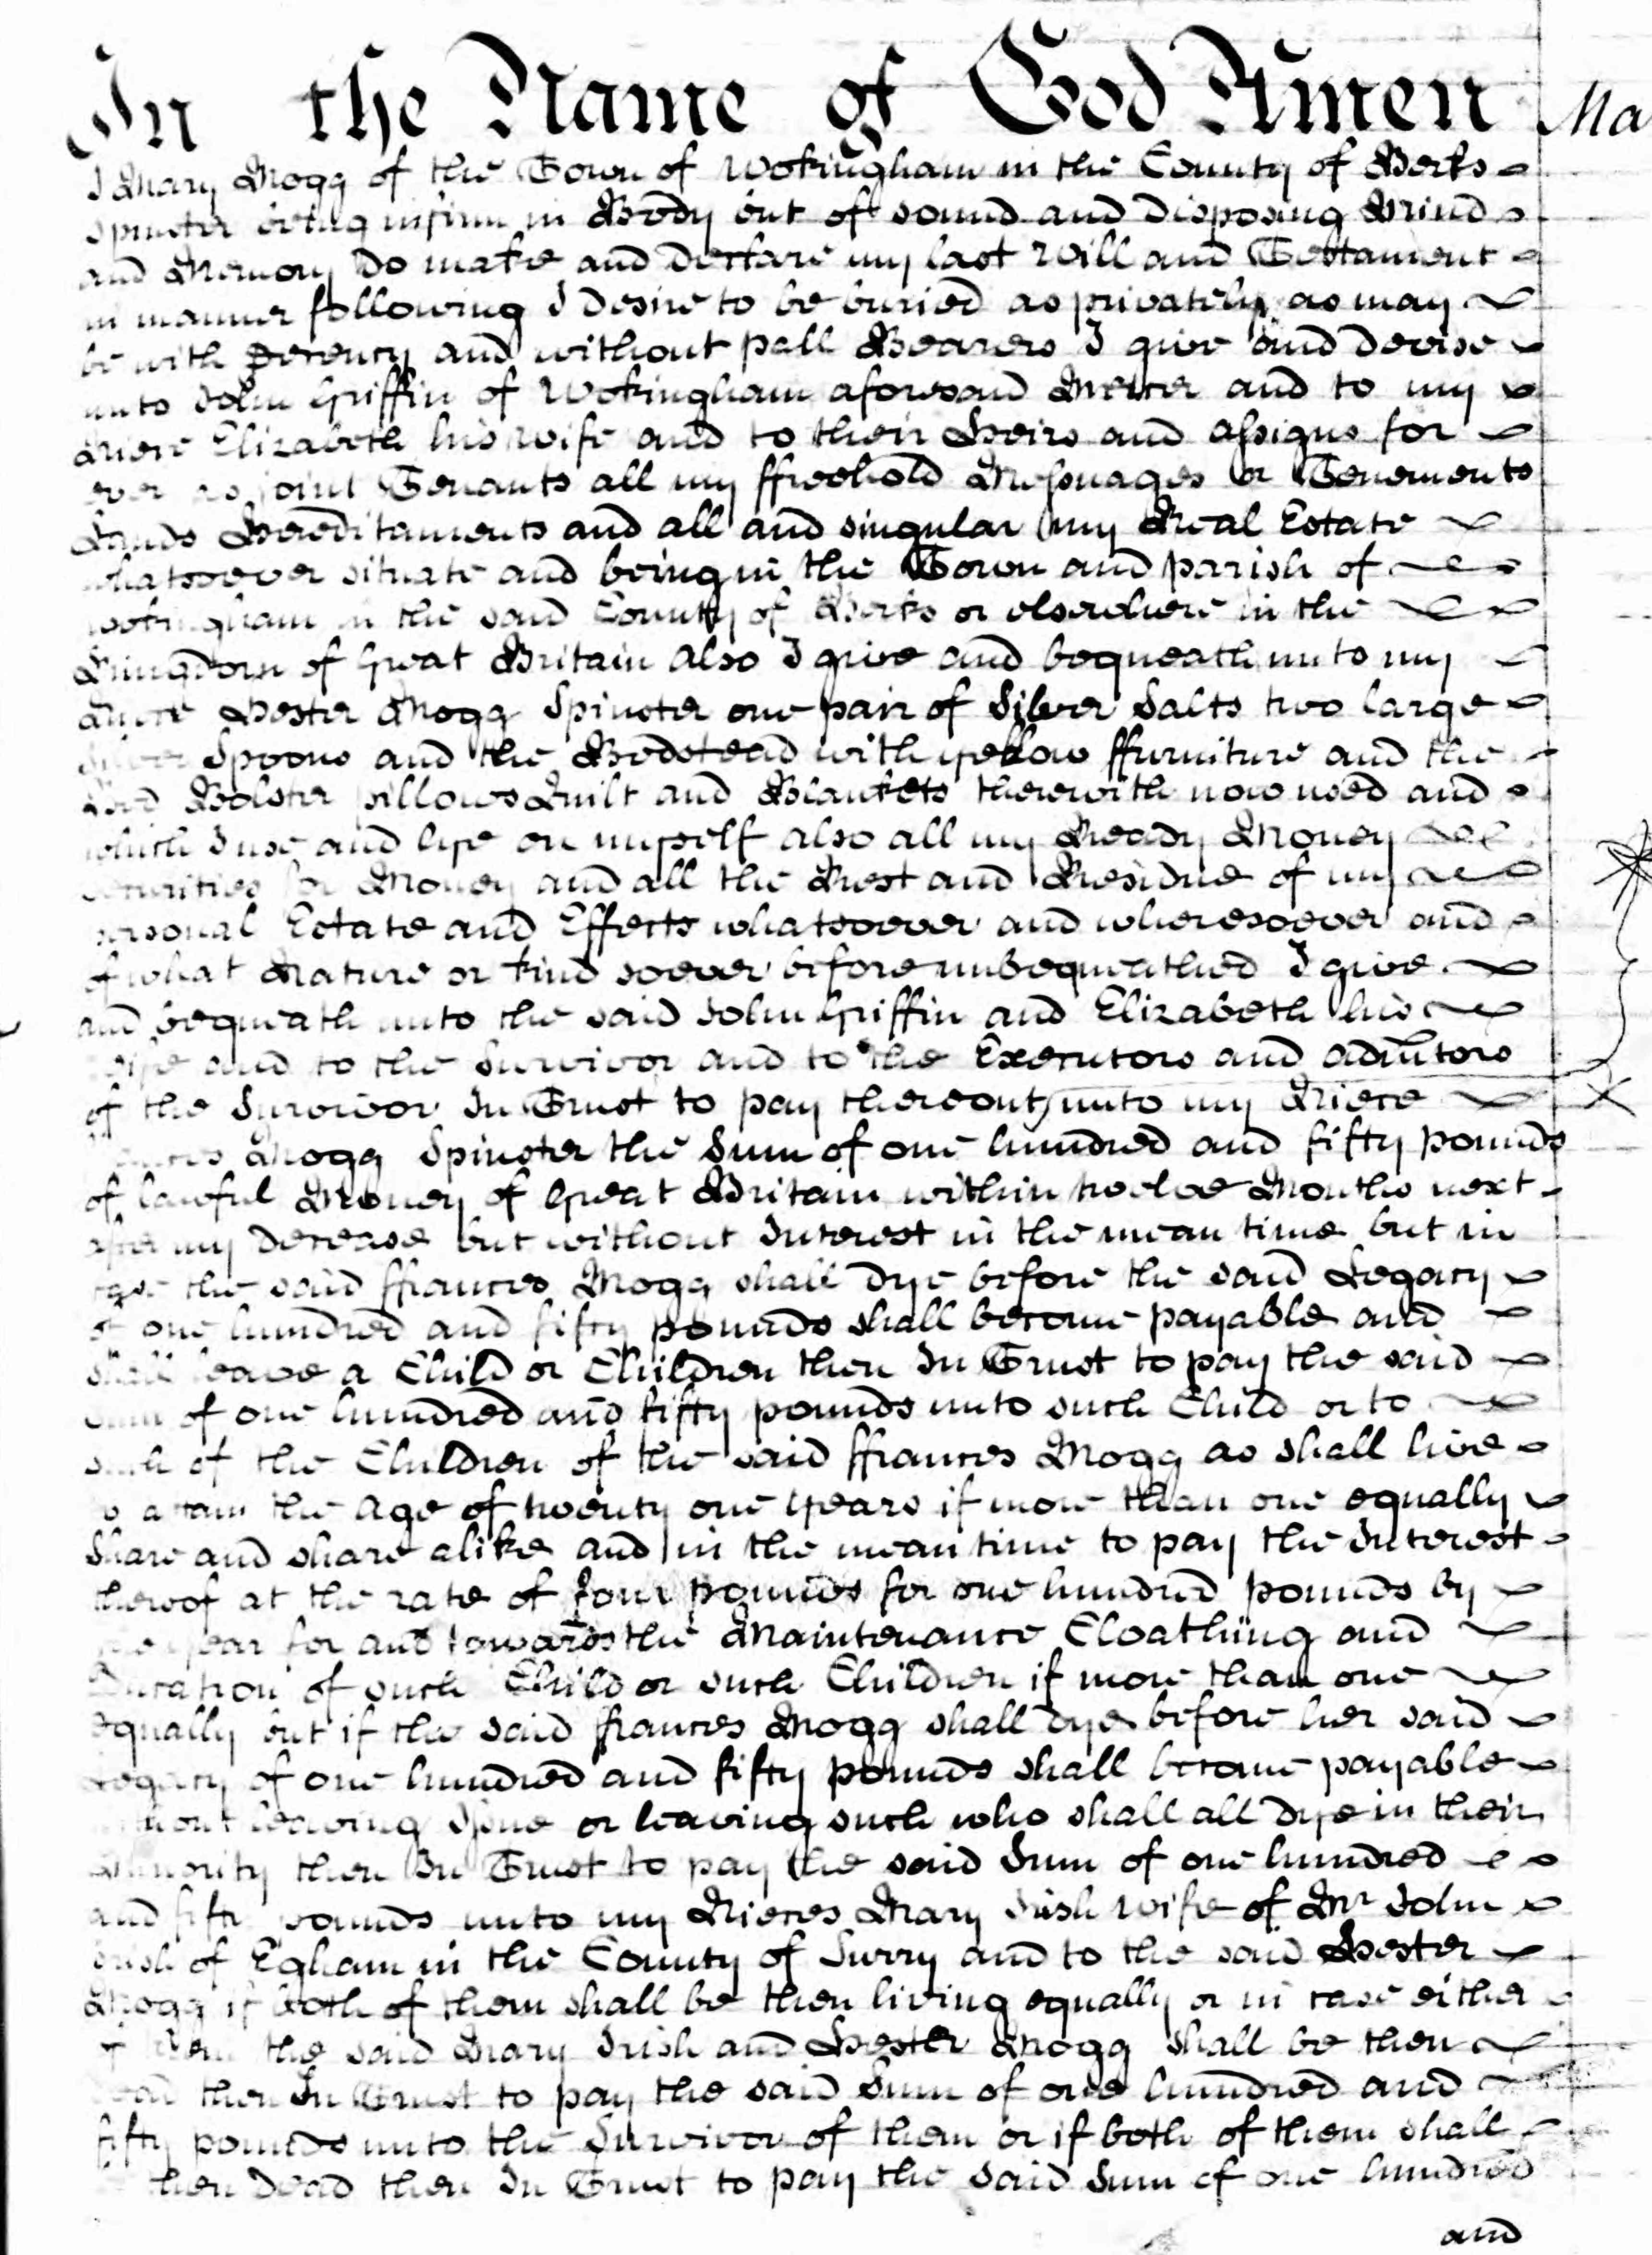 In the Name of God Amen Ma
I Mary Mogg of the Town of Wokingham in the County of Berks
Spinster being infirm in Body but of sound and disposing Mind
and Memory Do make and declare my last Will and Testament
in manner following I desire to be buried as privately as may
be with Decency and without pall Bearers I give and devise
unto John Griffin of Wokingham aforesaid Mercer and to my
Niece Elizabeth his wife and to their Heirs and assigns for
ever as joint Tenants all my ffreehold Messuages or Tenements
Lands Hereditaments and all and singular my Real Estate
whatsoever situate and being in the Town and parish of
Wokingham in the said County of Berks or elsewhere in the
Kingdom of Great Britain also I give and bequeath unto my
Niece Hester Mogg Spinster one pair of Silver Salts two large
Silver Spoons and the Bedstead with yellow ffurniture and the
Bed Bolster pillows Quilt and Blankets therewith now used and
which I use and lye on myself also all my Ready Money
Securities for Money and all the Rest and Residue of my
personal Estate and Effects whatsoever and wheresoever and
of what Nature or kind soever before unbequeathed I give
and bequeath unto the said John Griffin and Elizabeth his
wife and to the Survivor and to the Executors and admtors
of the Survivor In Trust to pay thereout unto my Niece
ffrances Mogg Spinster the Sum of one hundred and fifty pounds
of lawful Money of Great Britain within twelve Months next
after my decease but without Interest in the mean time but in
case the said ffrances Mogg shall dye before the said Legacy
of one hundred and fifty pounds shall become payable and
shall leave a Child or Children then In Trust to pay the said
Sum of one hundred and fifty pounds unto such Child or to
such of the Children of the said ffrances Mogg as shall live
to attain the Age of twenty one years if more than one equally
Share and share alike and in the mean time to pay the Interest
thereof at the rate of four pounds for one hundred pounds by
the year for and towards the Maintenance Cloathing and
Education of such Child or such Children if more than one
equally but if the said ffrances Mogg shall dye before her said
Legacy of one hundred and fifty pounds shall become payable
without leaving Issue or leaving such who shall all dye in their
Minority then In Trust to pay the said Sum of one hundred
and fifty pounds unto my Nieces Mary Irish wife of Mr John
Irish of Egham in the County of Surry and to the said Hester
Mogg if both of them shall be then living equally or in case either
of them the said Mary Irish and Hester Mogg shall be then
dead then In Trust to pay the said Sum of one hundred and
fifty pounds unto the Survivor of them or if both of them shall
then dead then In Trust to pay the said Sum of one hundred
and